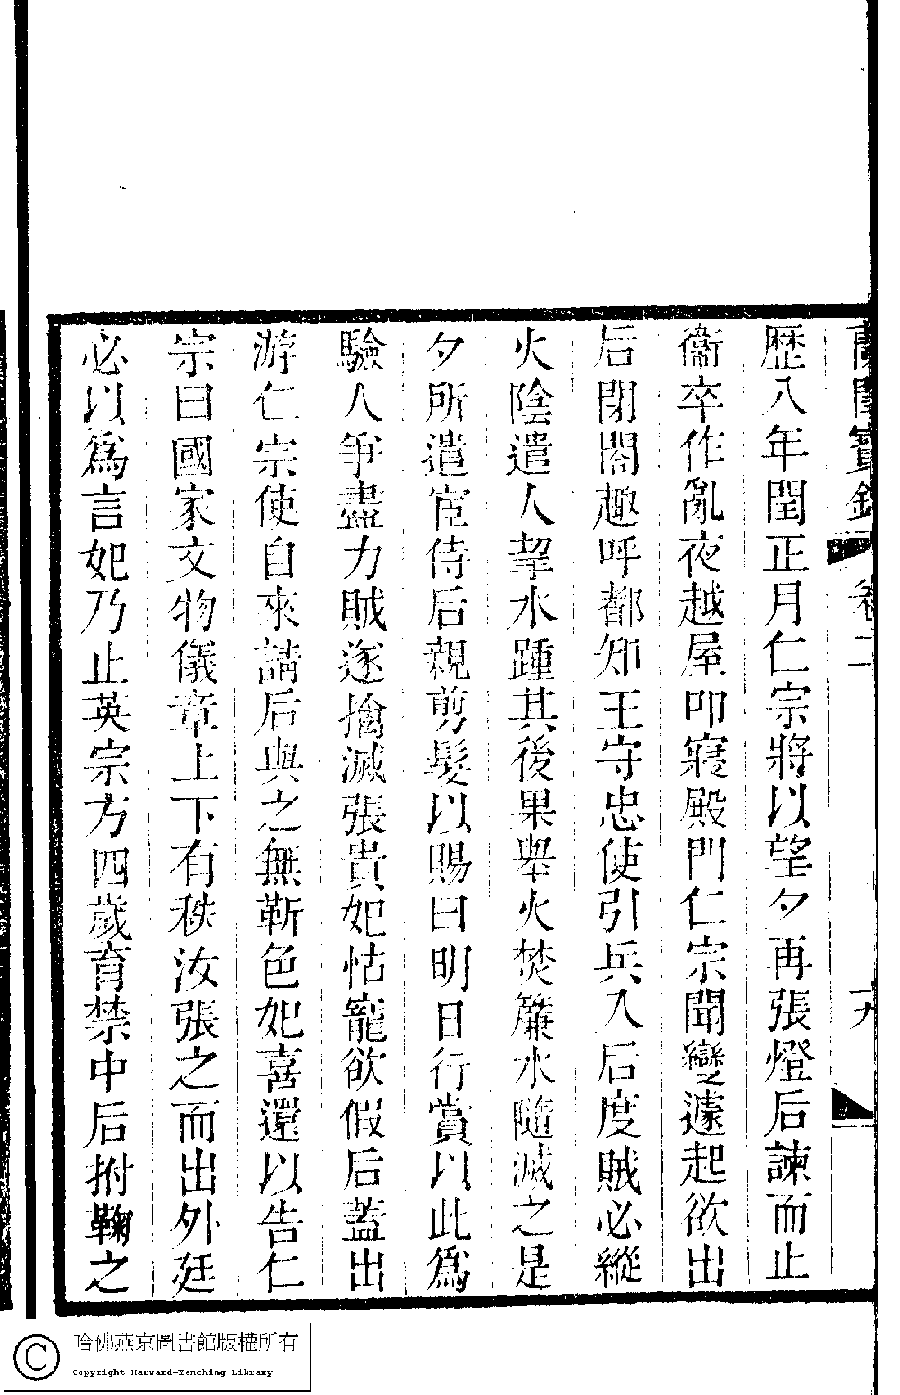 蘭閨寶錄 卷二 十九
歷八年閏正月仁宗將以望夕再張燈后諫而止
衞卒作亂夜越屋叩寢殿門仁宗聞變遽起欲出
后閉閤趣呼都知王守忠使引兵入后度賊必縱
火陰遣人挈水踵其後果舉火焚簾水隨滅之是
夕所遣宦侍后親剪髮以賜曰明日行賞以此爲
驗人爭盡力賊遂擒滅張貴妃怙寵欲假后蓋出
游仁宗使自來請后與之無靳色妃喜還以告仁
宗曰國家文物儀章上下有秩汝張之而出外廷
必以爲言妃乃止英宗方四歲育禁中后拊鞠之
哈佛燕京圖書館版權所有
Copyright Harvard-Yenching Library